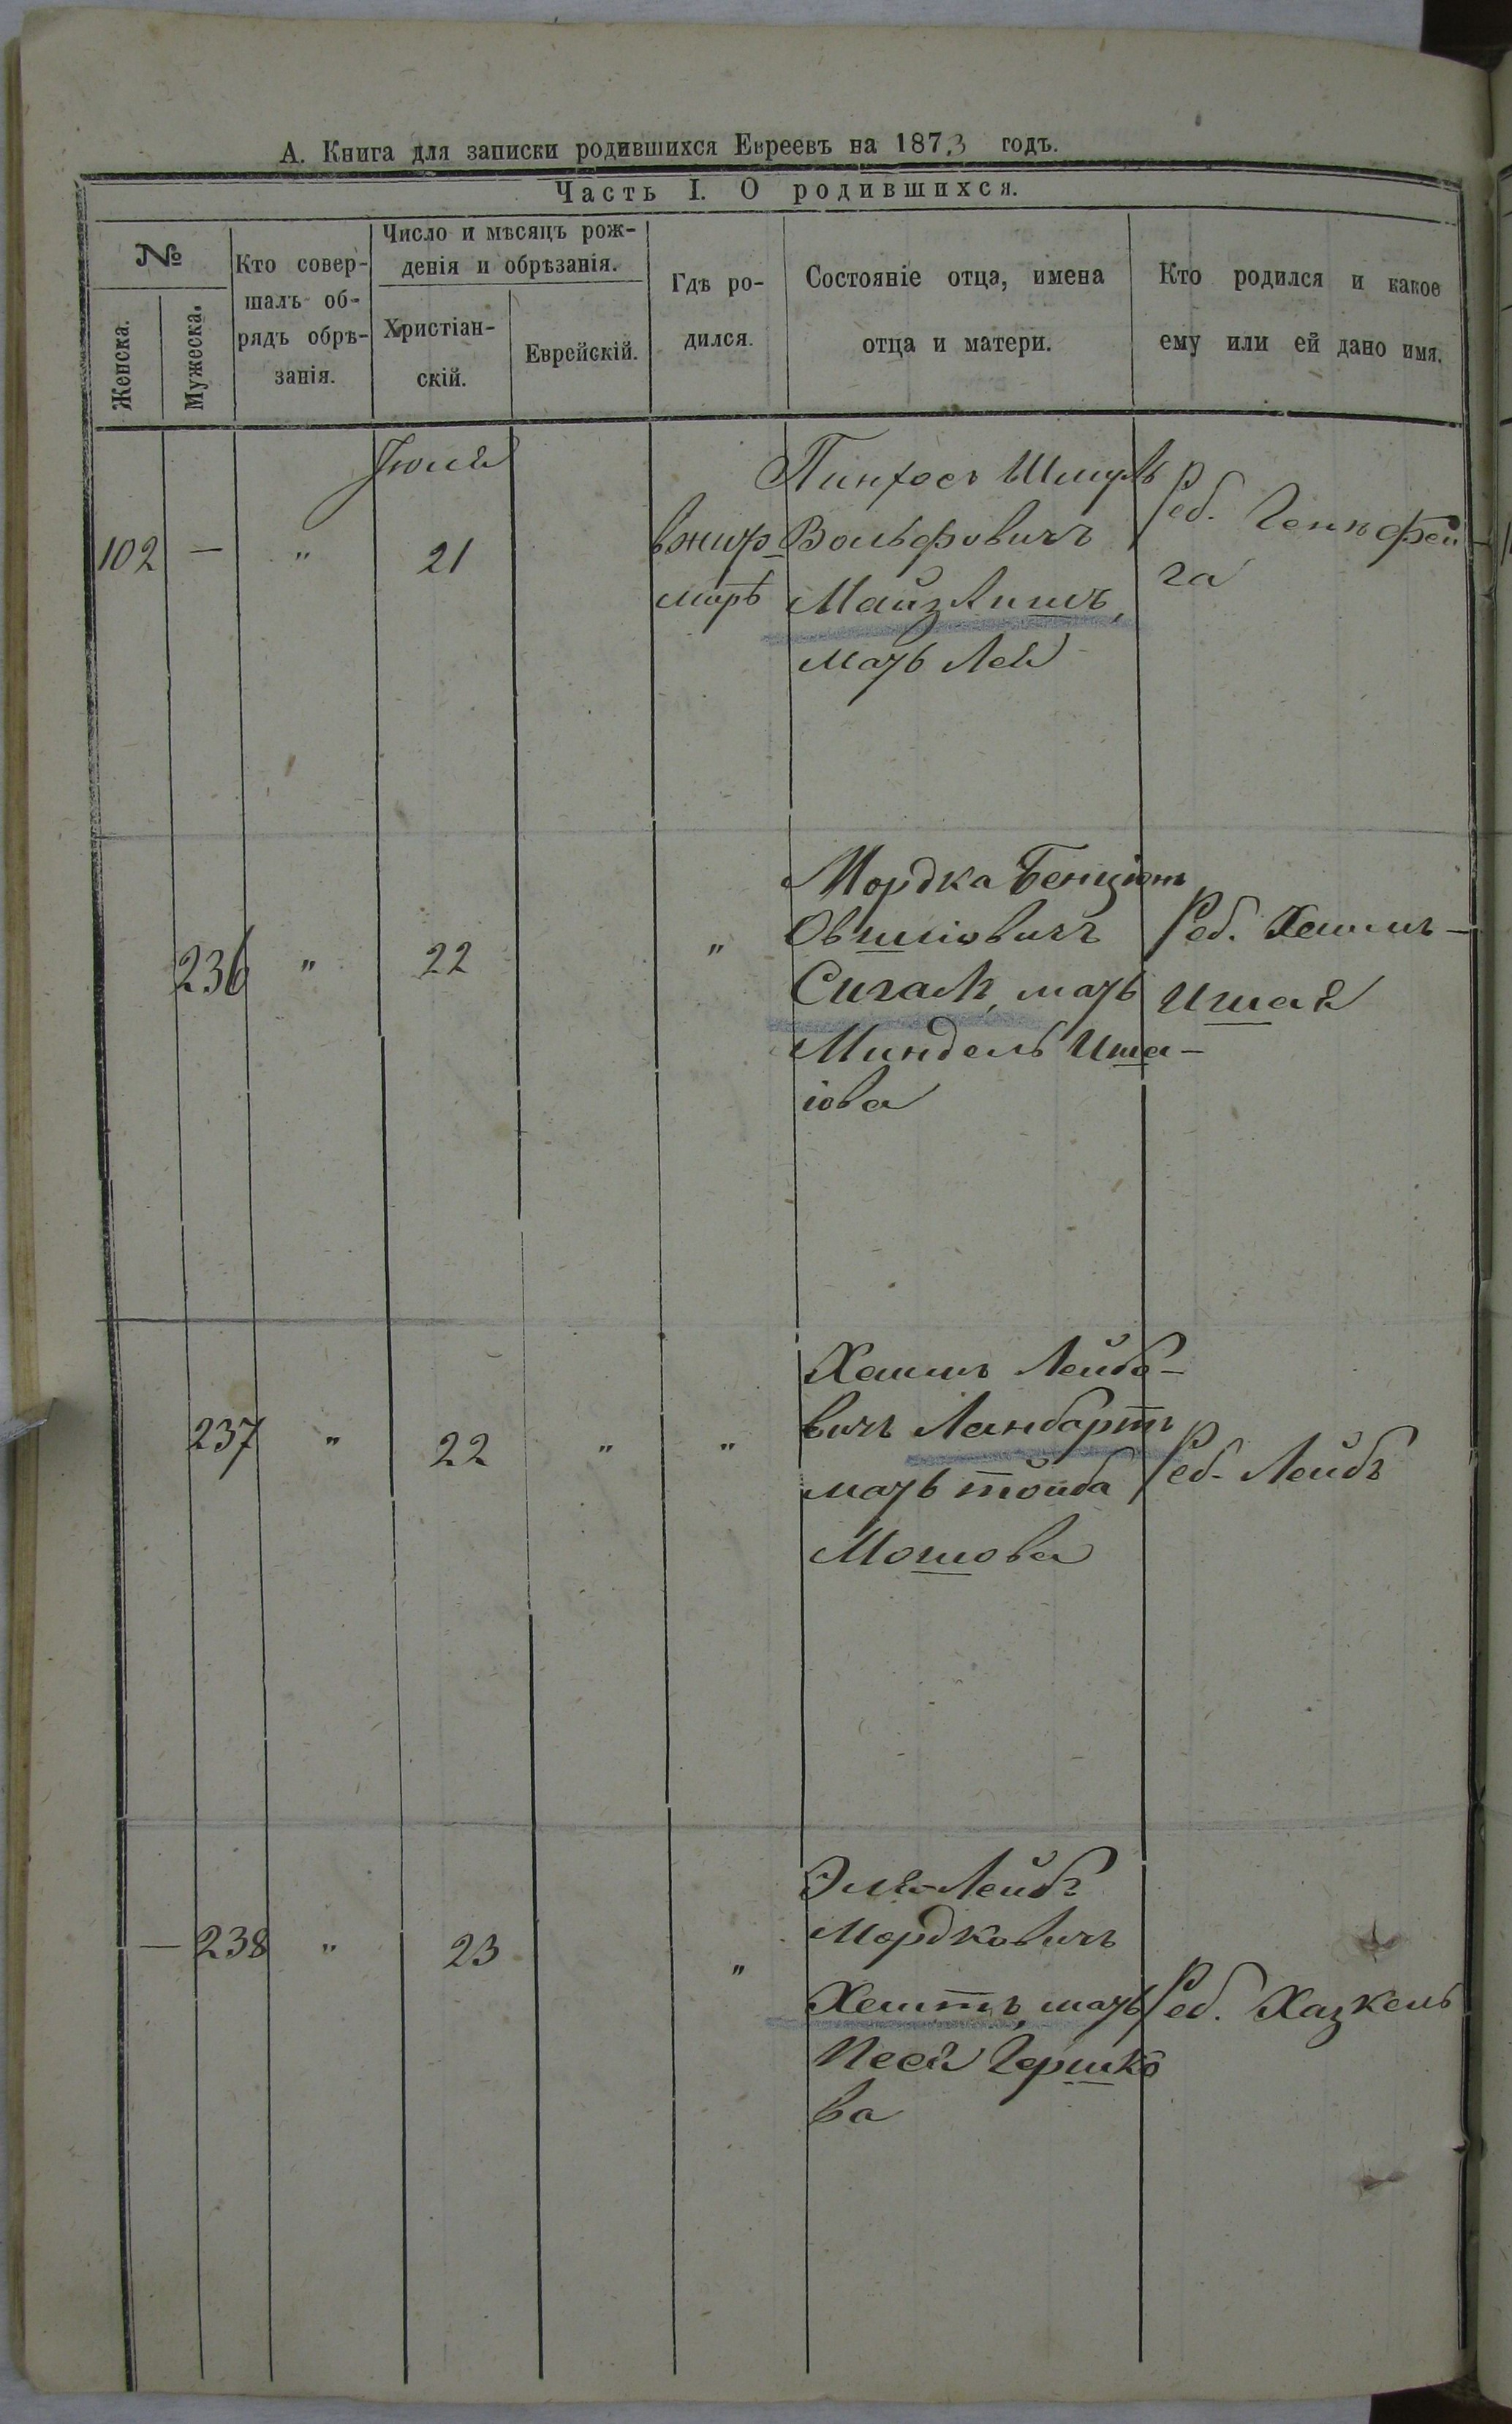 А. Книга для записки родившихся Евреевъ на 1873 годъ.
Часть I. О родившихся.
№
Женска.
Мужеска.
Кто совер-
шалъ об-
рядъ обрѣ-
занія.
Число и мѣсяцъ рож-
денія и обрѣзанія.
Христіан-
скій.
Еврейскій.
Гдѣ ро-
дился.
Состояніе отца, имена
отца и матери.
Кто родился и какое
ему или ей дано имя.
102 — " 21
Пинхосъ Шмуль
Вольфовичъ
Майзлишъ,
мать Лея
Реб. Генъ Фей-
га
236 " 22 "
Мордка Бенціонъ
Овшіовичъ
Сигалъ, мать
Миндель Иша-
іова
Реб. Хаимъ-
Ишая
237 " 22 " "
Хаимъ Лейбо-
вичъ Ланбартъ
мать тойба
Мошова
Реб. Лейбъ
— 238 " 23 "
Эля-Лейбъ
Мордковичъ
мать
Песя Гершко
ва
Реб. Хазкель